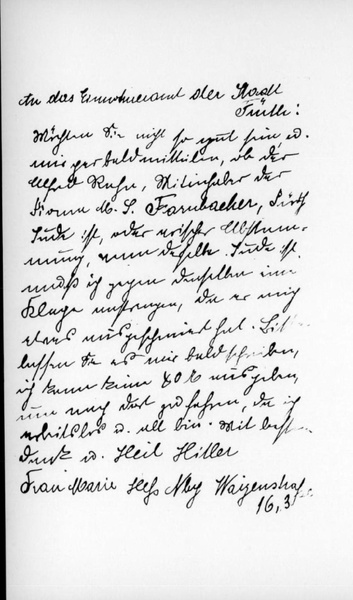 An das Einwohneramt der Stadt
Fürth!
Möchten Sie nicht so gut sein u.
mir gar bald mitteilen, ob der
Alfred Kuhn, Mitinhaber der
Firma M. S. Farnbacher, Fürth
Jude ist, oder arischer Abstam-
mung, wenn derselbe Jude ist
muß ich gegen denselben eine
Klage anfangen, da er mich
etwas ausgeschmiert hat. Bitte
lassen Sie es mir bald schreiben,
ich kann keine 80 ₰ ausgeben,
um nach dort zu fahren, da ich
arbeitslos u. alt bin. Mit best.
Dank u. Heil Hitler
Frau Marie Heß Nbg Waizenstraße
16, 3